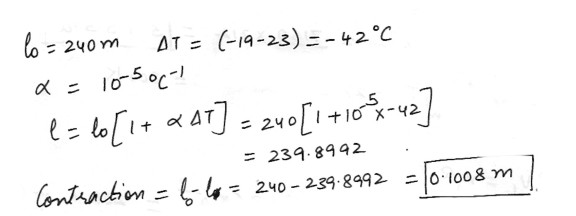 l₀ = 240 m ΔT = (-19-23) = -42°C
α = 10⁻⁵ °C⁻¹
l = l₀[1 + αΔT] = 240[1 + 10⁻⁵ x -42]
= 239.8992
Contraction = l₀ - l = 240 - 239.8992 = 0.1008 m